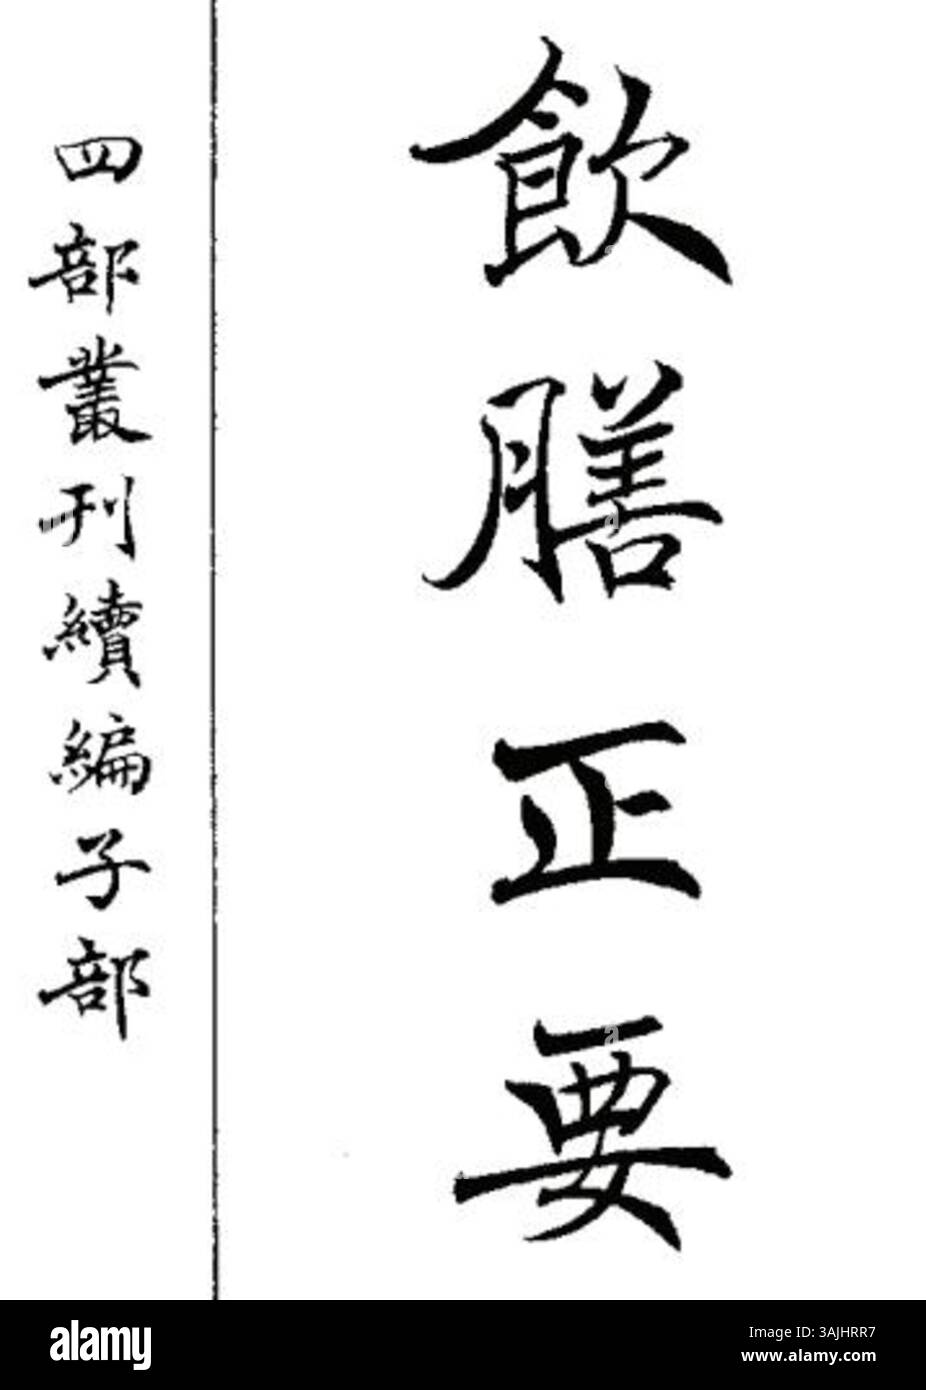 飲膳正要
四部叢刊續編子部
alamy
Image ID: 3AJHRR7
www.alamy.com